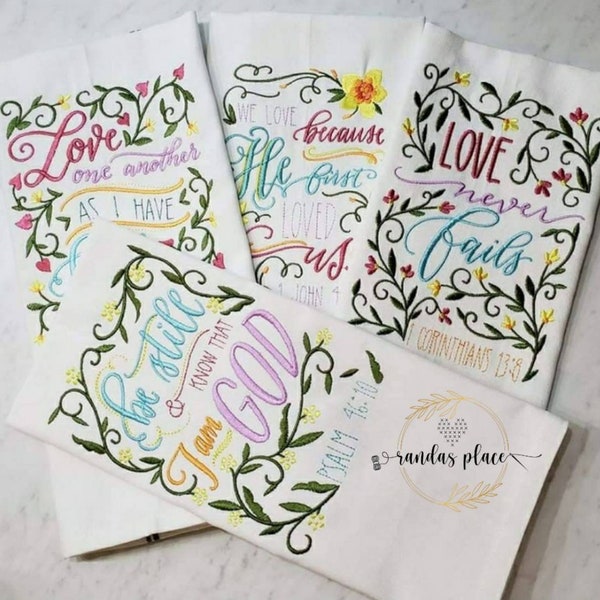 Love
one another
AS I HAVE
WE LOVE
because
He first
LOVED
us.
1 JOHN 4
LOVE
never
fails
1 CORINTHIANS 13:8
be still
& KNOW THAT
I am GOD
PSALM 46:10
randas place